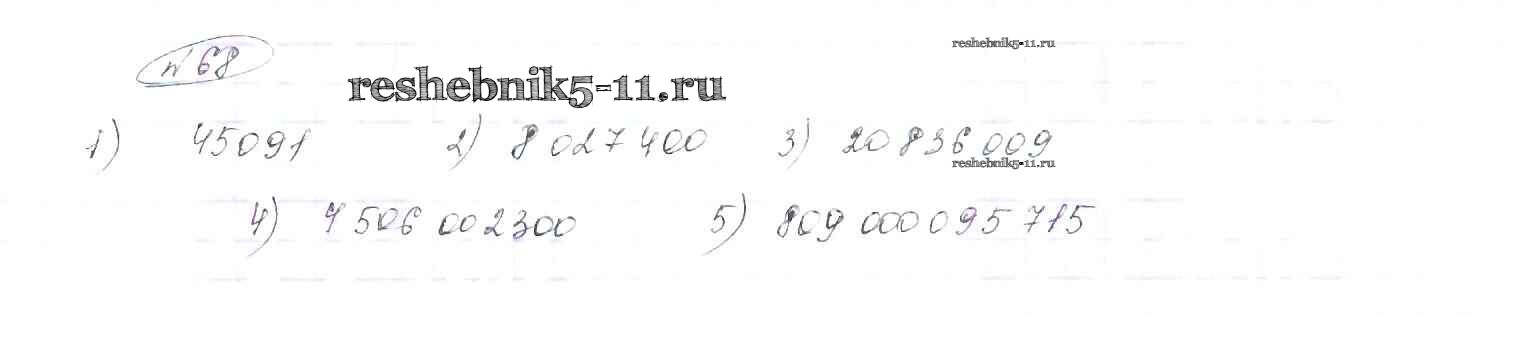 № 68
reshebnik5-11.ru
reshebnik5-11.ru
1) 45091 2) 8 027 400 3) 20 836 009
reshebnik5-11.ru
4) 4 506 002300 5) 809 000 095 715